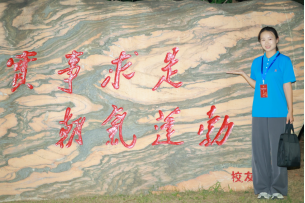 實事求是
朝氣蓬勃
校友